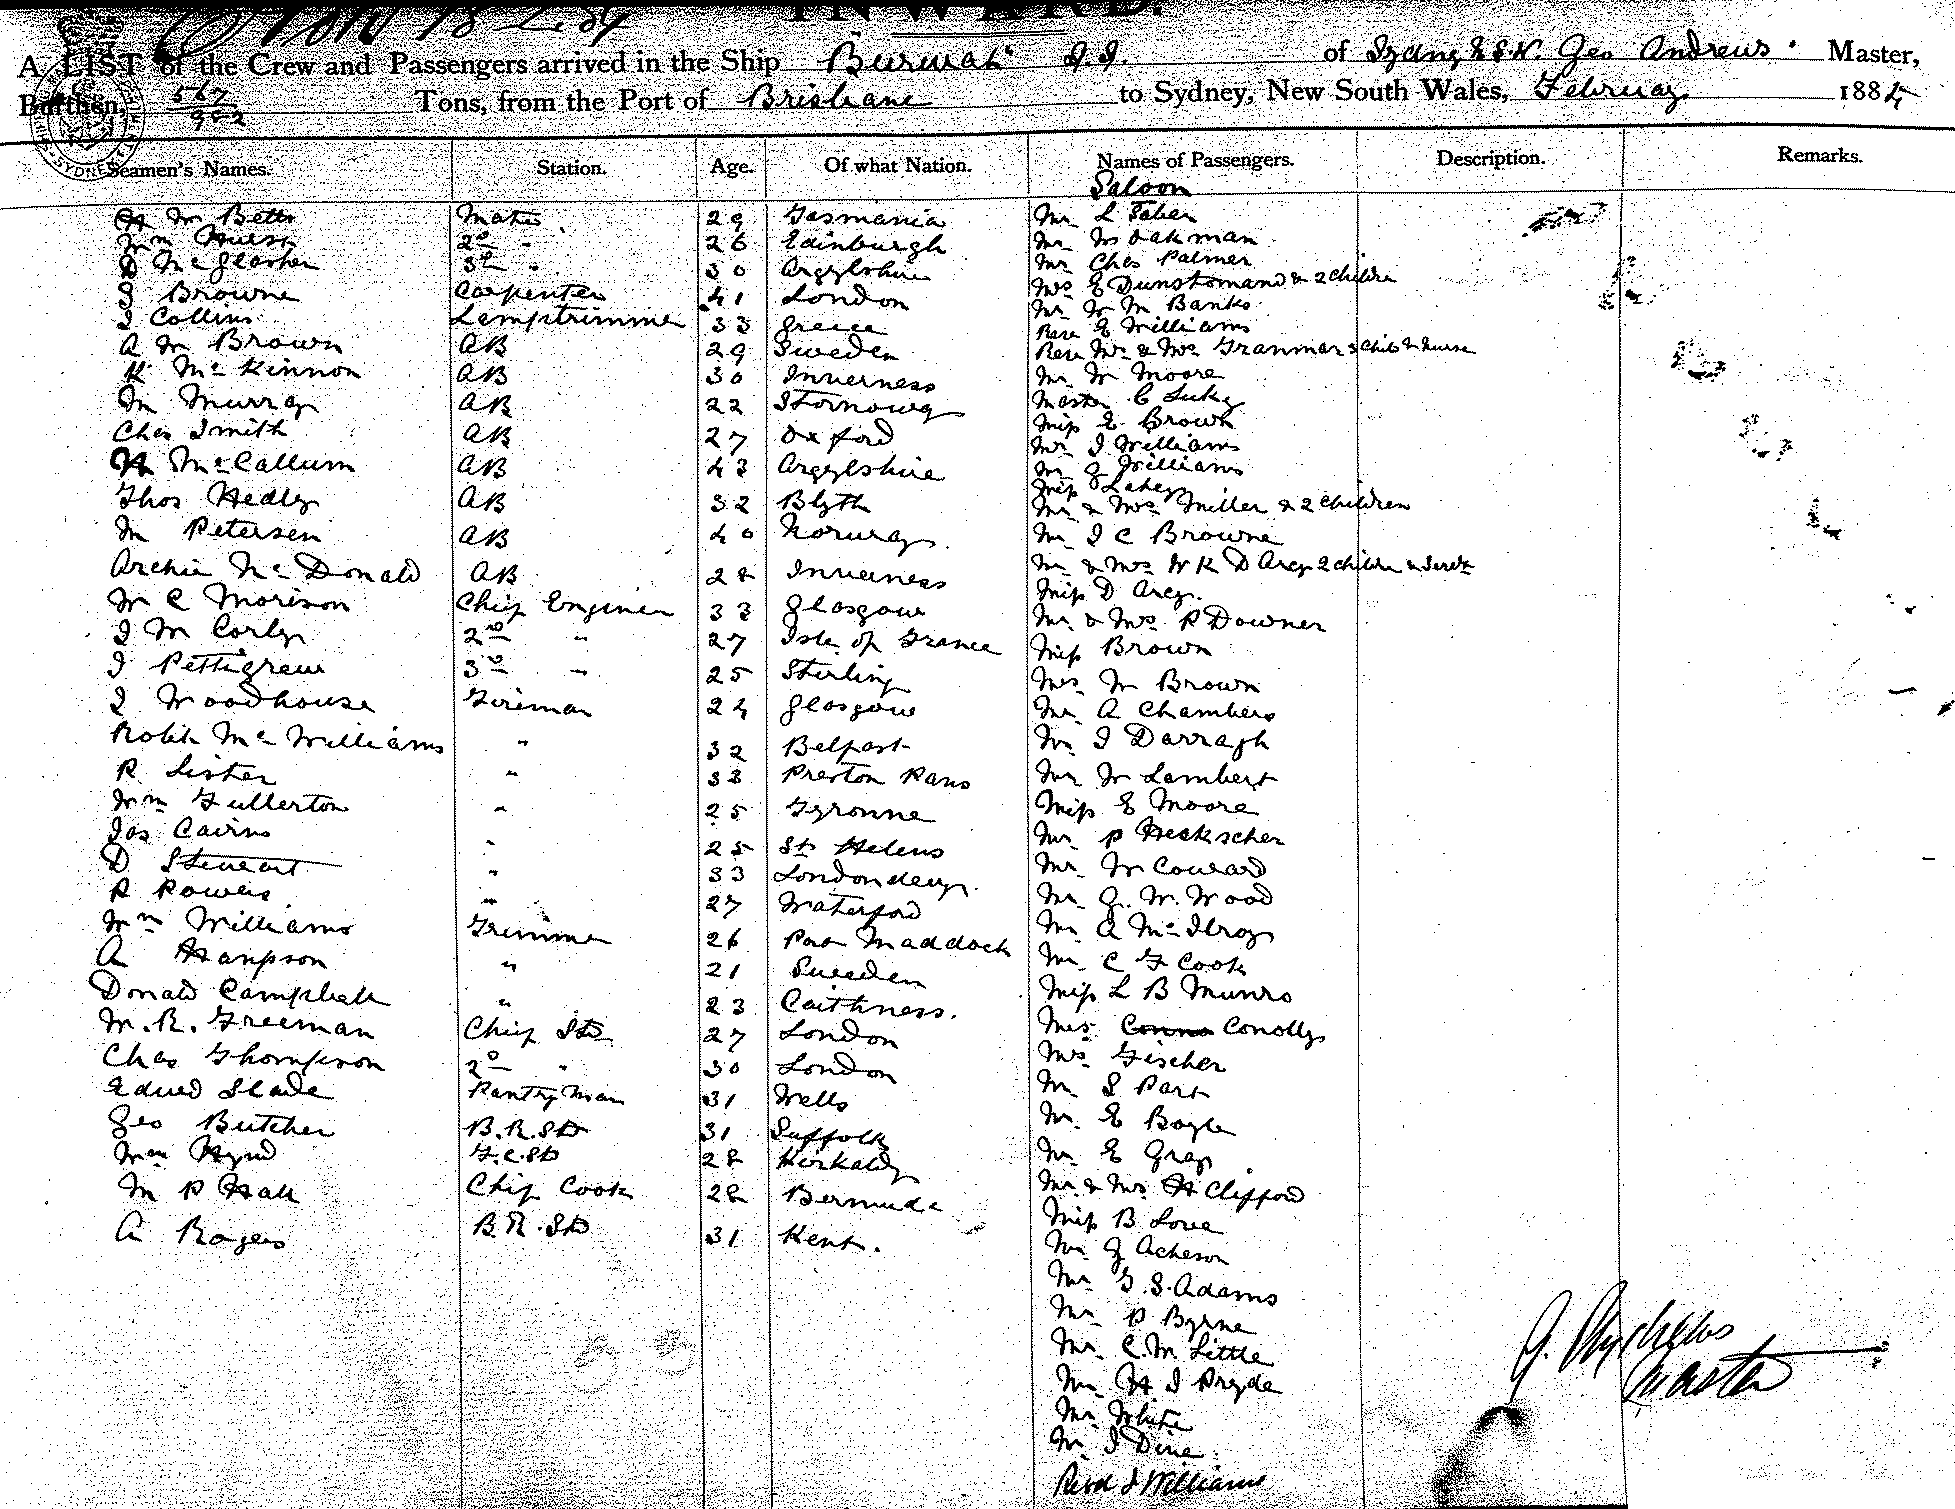 INWARD.
A LIST of the Crew and Passengers arrived in the Ship "Burwah" S.S. of Sydney N.S.W. Geo Andrews. Master,
Burthen, 567 Tons, from the Port of Brisbane to Sydney, New South Wales, February 1884
Seamen's Names. Station. Age. Of what Nation. Names of Passengers. Description. Remarks.
Saloon
H W Betts Mate 29 Tasmania Mr L Faber
Wm Hurst 2nd " 26 Edinburgh Mr Ws Oakman
D McGlashen 3rd " 30 Argylshire Mr Chas Palmer
J Browne Carpenter 41 London Mrs E & 2 Children
J Collins Lamptrimmer 33 Greece Mr W M Banks
Revd E Williams
A M Brown AB 29 Sweden Revd Mr & Mrs 3 Child & Nurse
K McKinnon AB 30 Inverness Mr W Moore
M Murray AB 22 Stornoway Master C Lukey
Chas Smith AB 27 Oxford Miss E Brown
Mr J Williams
H McCallum AB 43 Argylshire Mr G Williams
Miss Lahey
Thos Hedley AB 32 Blyth Mr & Mrs Miller & 2 Children
M Petersen AB 40 Norway Mr J C Browne
Archie McDonald AB 28 Inverness Mr & Mrs W K D Arcy 2 children & Servt
W C Morison Chief Engineer 33 Glasgow Miss D Arcy.
J M Corly 2nd " 27 Isle of France Mr & Mrs R Downer
J Pettigrew 3rd " 25 Stirling Miss Brown
J Woodhouse Fireman 24 Glasgow Mrs W Brown
Mr A Chambers
Robt McWilliams " 32 Belfast Mr J Darragh
R Lister " 33 Preston Pans Mr W Lambert
Wm Fullerton " 25 Tyronne Miss E Moore
Jas Cairns " 25 St Helens Mr P Heckscher
D Stewart " 33 Londonderry. Mr W Coward
R Powers " 27 Waterford Mr G. W. Wood
Wm Williams Trimmer 26 Port Maddock Mr A McIlroy
A Hanpson " 21 Sweden Mr C F Cook
Donald Campbell " 23 Caithness. Miss L B Munro
W. R. Freeman Chief Std 27 London Mrs Conno Conolly
Chas Thompson 2nd " 30 London Mrs Fischer
Edwed Slade Pantry Man 31 Wells Mr S Part
Geo Butcher B.R.Std 31 Suffolk Mr E Boyle
Wm Hynd F.C.Std 28 Kirkaldy Mr E Gray
W P Hall Chief Cook 28 Bermuda Mr & Mrs H Clifford
A Rogers B.R.Std 31 Kent. Miss B Love
Mr G Acheson
Mr G. S. Adams
Mr P Byrne
Mr C. M. Little
Mr H J Pryde
Mr White
Mr J Dine
Revd J Williams
G. Andrews
Master